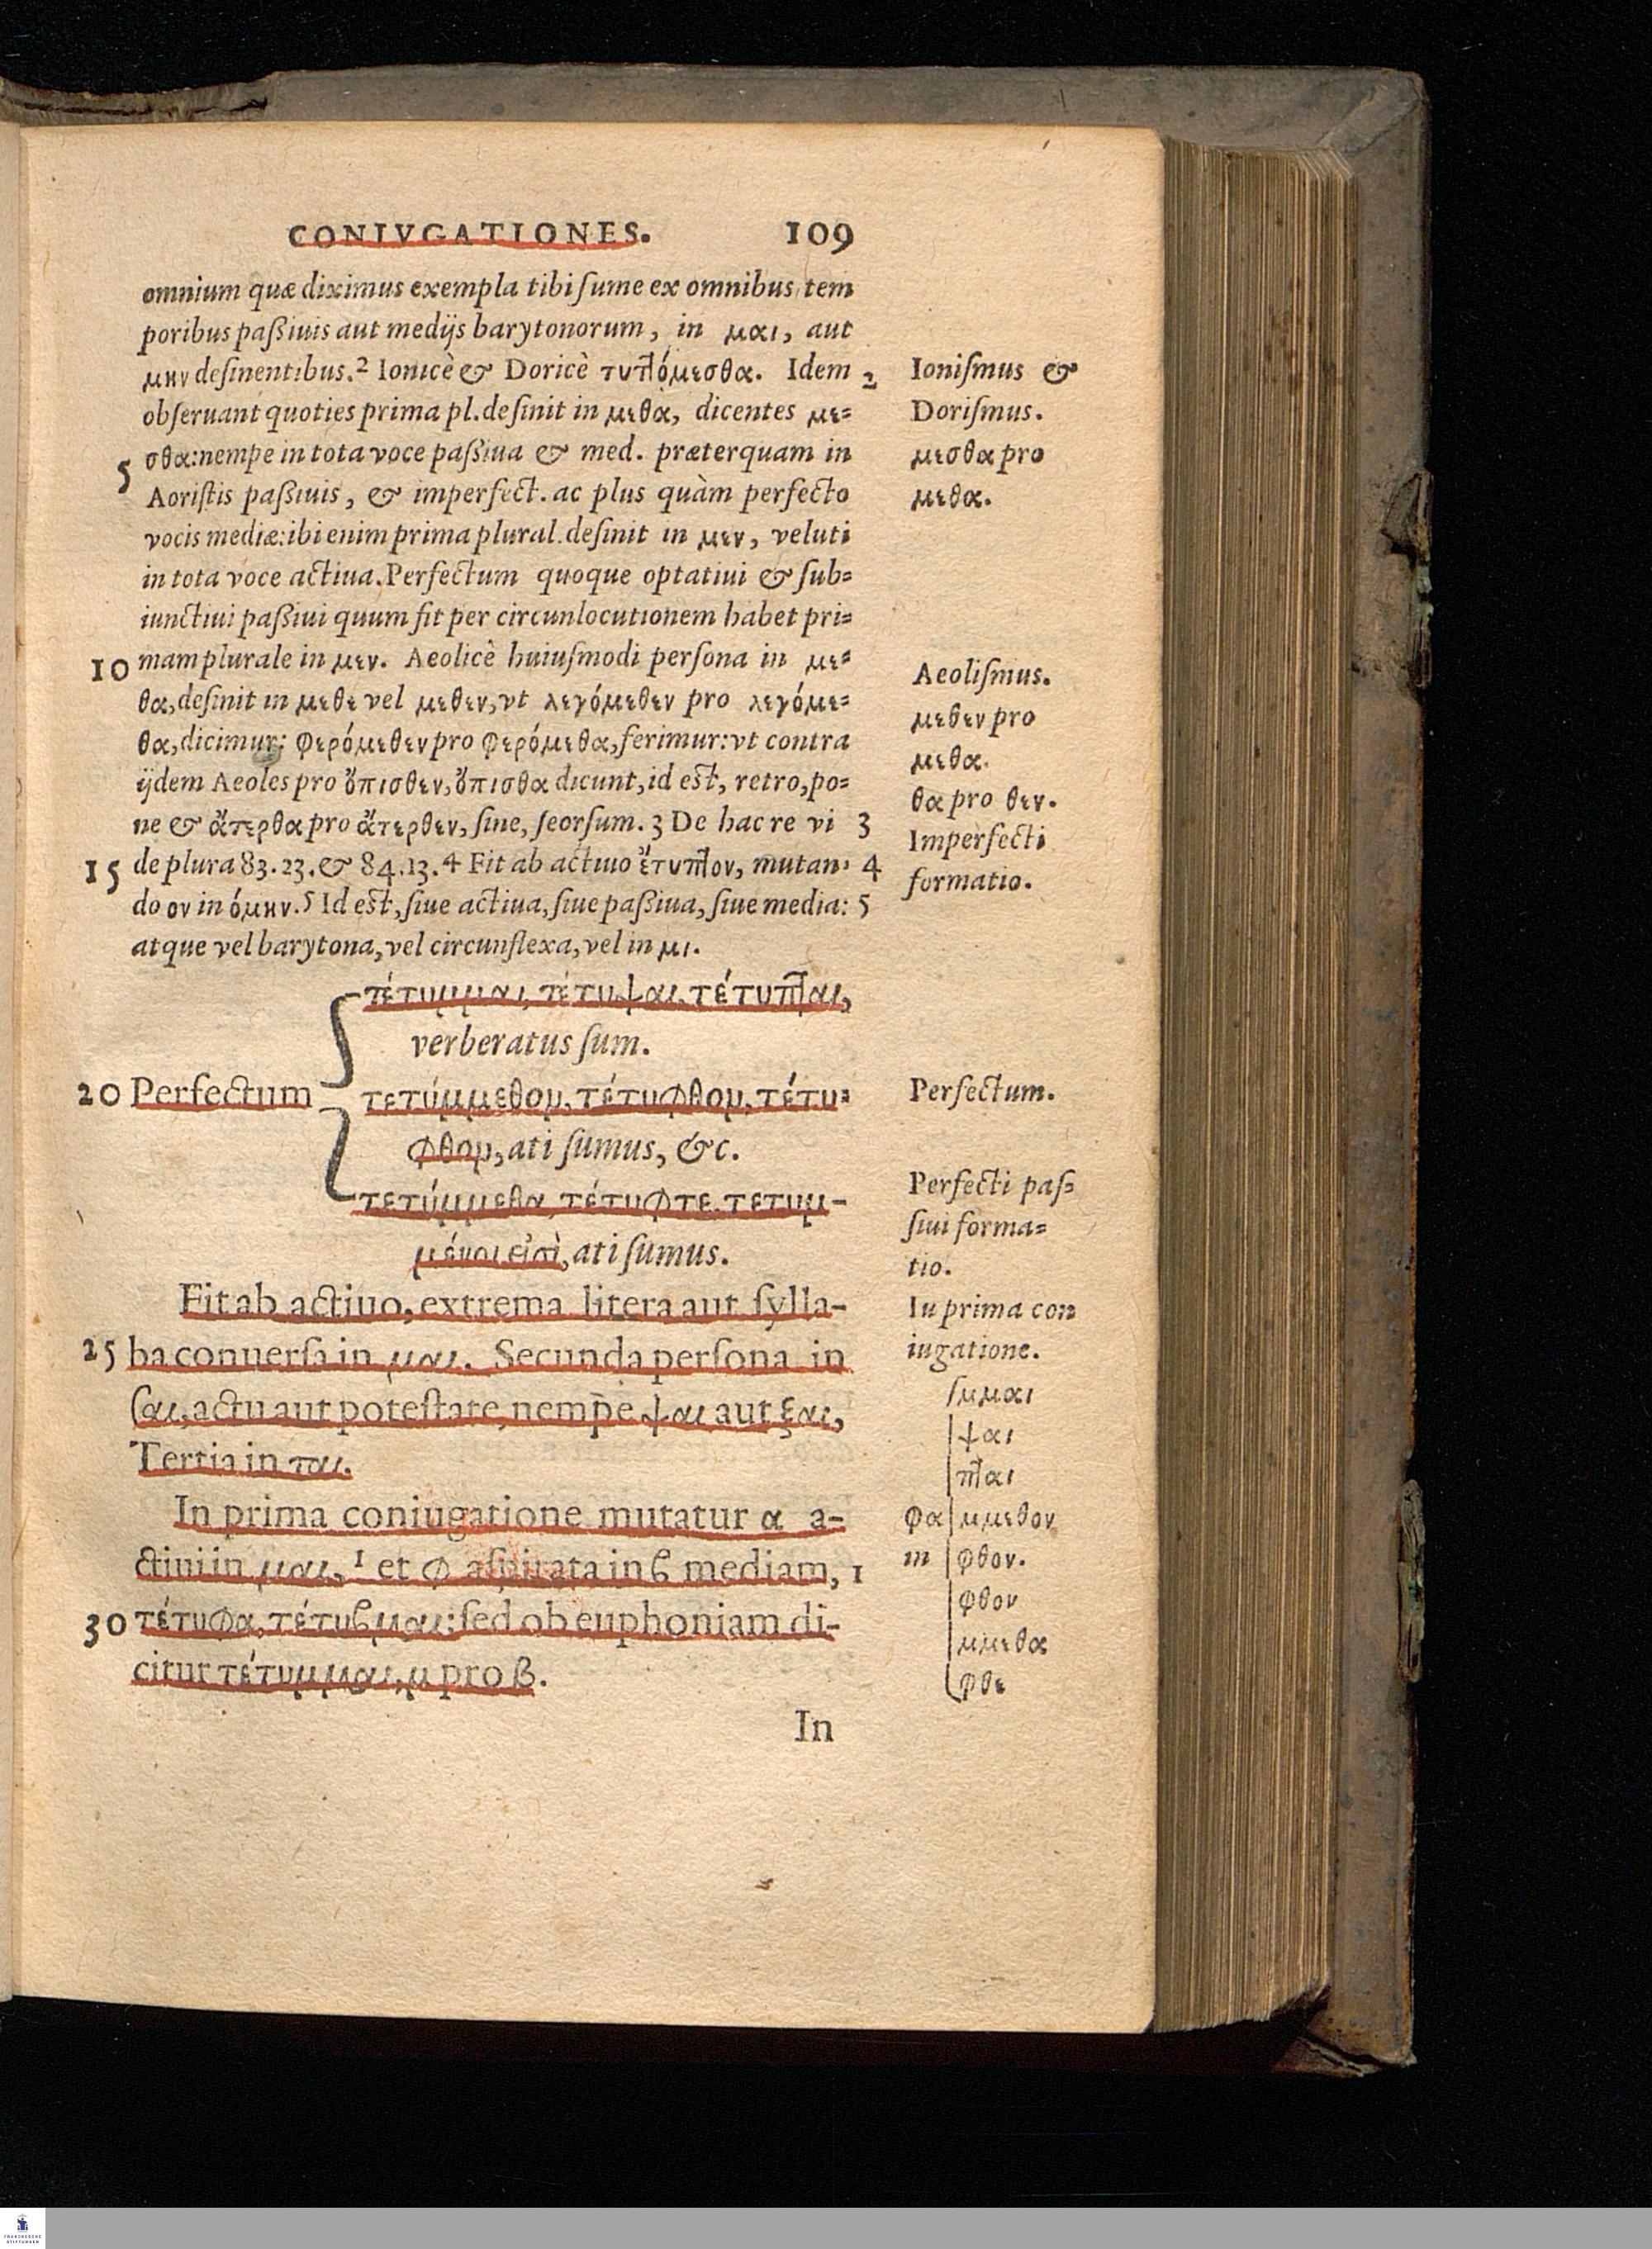 CONIVGATIONES. 109
omnium quæ diximus exempla tibi ſume ex omnibus tem
poribus paßiuis aut medijs barytonorum, in μαι, aut
μην deſinentibus.² Ionicè & Doricè τυπτόμεσθα. Idem 2
obſeruant quoties prima pl. deſinit in μεθα, dicentes με=
5 σθα: nempe in tota voce paßiua & med. præterquam in
Aoriſtis paßiuis, & imperfect. ac plus quàm perfecto
vocis mediæ: ibi enim prima plural. deſinit in μεν, veluti
in tota voce actiua. Perfectum quoque optatiui & ſub=
iunctiui paßiui quum fit per circunlocutionem habet pri=
10 mam plurale in μεν. Aeolicè huiuſmodi perſona in με=
θα, deſinit in μεθε vel μεθεν, vt λεγόμεθεν pro λεγόμε=
θα, dicimur: φερόμεθεν pro φερόμεθα, ferimur: vt contra
ijdem Aeoles pro ὄπισθεν, ὄπισθα dicunt, id eſt, retro, po=
ne & ἄτερθα pro ἄτερθεν, ſine, ſeorſum. 3 De hac re vi 3
15 de plura 83. 23. & 84. 13. 4 Fit ab actiuo ἔτυπτον, mutan= 4
do ον in όμην. 5 Id eſt, ſiue actiua, ſiue paßiua, ſiue media: 5
atque vel barytona, vel circunflexa, vel in μι.
τέτυμμαι, τέτυψαι, τέτυπται,
verberatus ſum.
20 Perfectum τετύμμεθον, τέτυφθον, τέτυ=
φθον, ati ſumus, &c.
τετύμμεθα, τέτυφτε, τετυμ-
μένοι εἰσὶ, ati ſumus.
Fit ab actiuo, extrema litera aut ſylla-
25 ba conuerſa in μαι. Secunda perſona in
σαι, actu aut poteſtate, nempe ψαι aut ξαι,
Tertia in ται.
In prima coniugatione mutatur α a-
ctiui in μαι, ¹ et φ aſpirata in ϐ mediam, 1
30 τέτυφα, τέτυϐμαι: ſed ob euphoniam di-
citur τέτυμμαι, μ pro β.
In
Ioniſmus &
Doriſmus.
μεσθα pro
μεθα.
Aeoliſmus.
μεθεν pro
μεθα.
θα pro θεν.
Imperfecti
formatio.
Perfectum.
Perfecti paſ=
ſiui forma=
tio.
In prima con
iugatione.
μμαι
ψαι
πται
φα μμεθον
in φθον.
φθον
μμεθα
φθε
FRANCKESCHE
STIFTUNGEN